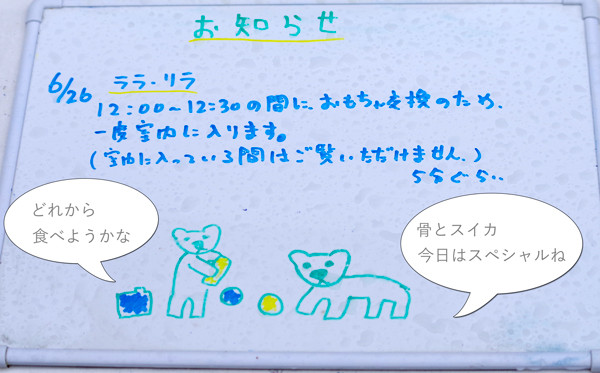 お知らせ
6/26 ララ・リラ
12:00〜12:30の間に、おもちゃ交換のため、
一度室内に入ります。
(室内に入っている間はご覧いただけません。)
5分ぐらい..
どれから
食べようかな
骨とスイカ
今日はスペシャルね